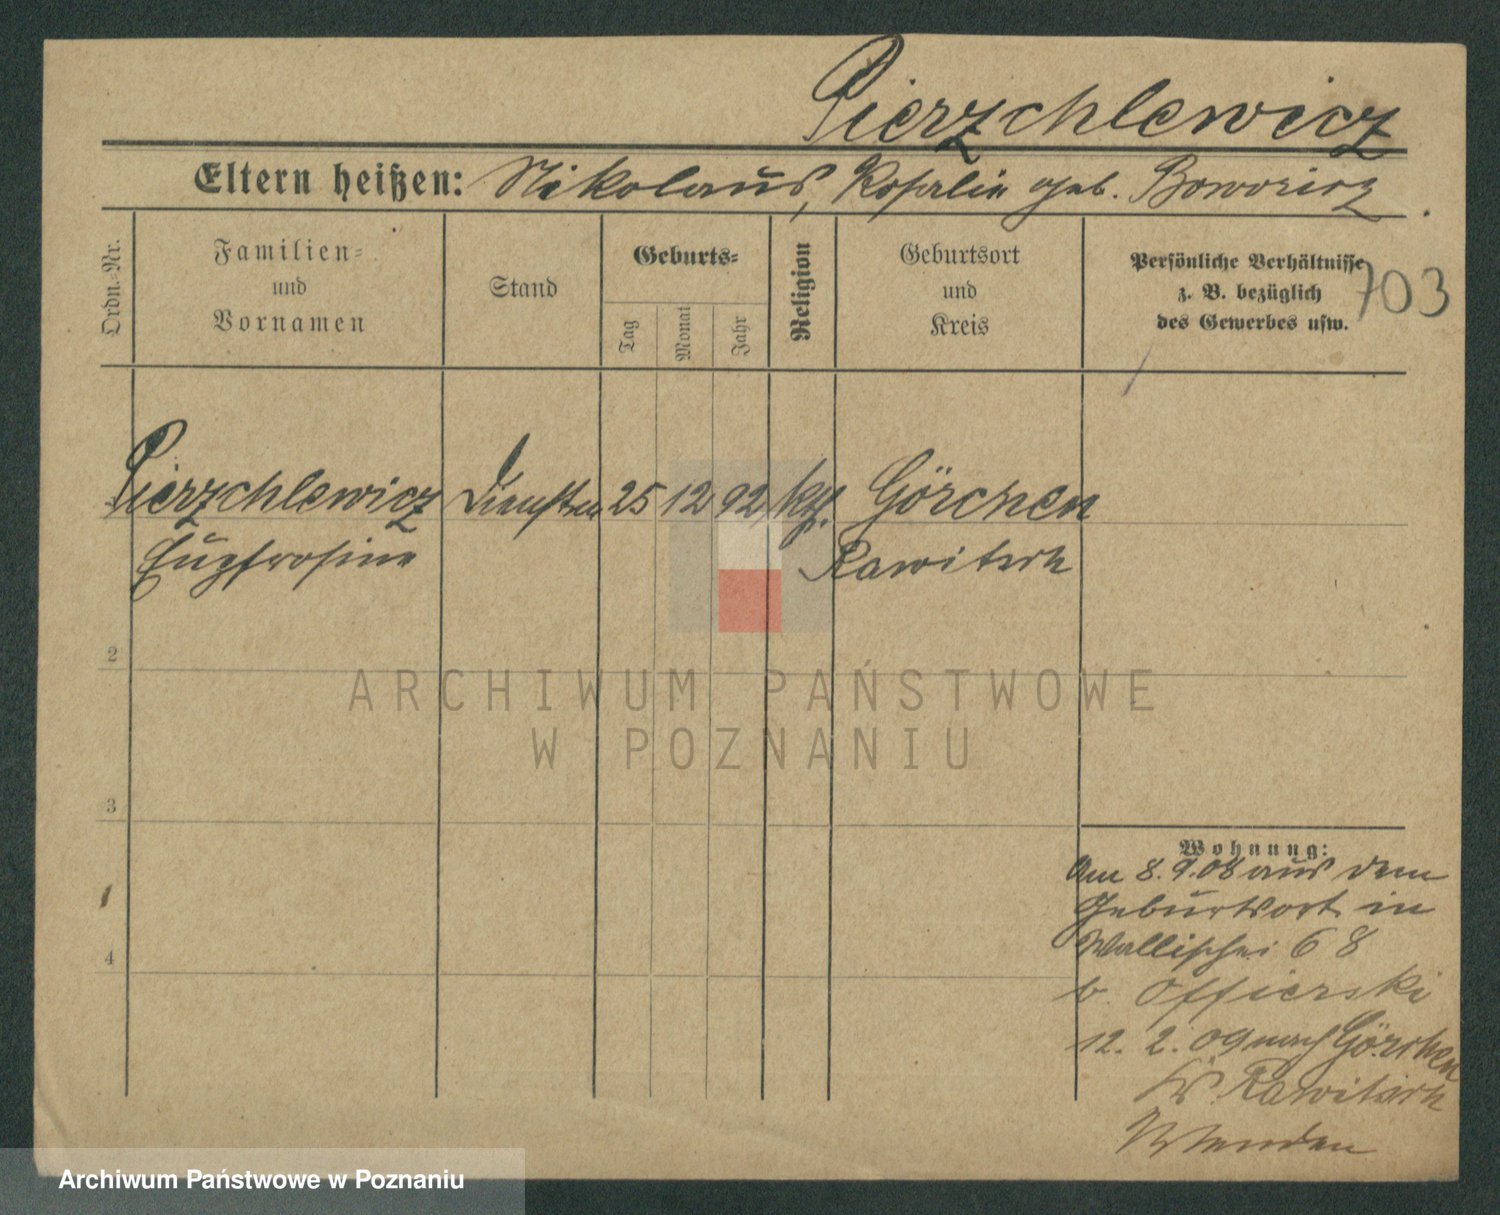 Pierzchlewicz
Eltern heißen: Nikolaus, Rosalie geb. Boworicz
Ordn.-Nr.
Familien-
und
Vornamen
Stand
Geburts-
Tag
Monat
Jahr
Religion
Geburtsort
und
Kreis
Persönliche Verhältnisse
z. B. bezüglich
des Gewerbes usw.
703
Pierzchlewicz Dienstm 25 12 92 kth. Görchen
Eufrosine Rawitsch
2
3
4
Wohnung:
Am 8.9.08 aus dem
Geburtsort in
Wallischei 68
b. Offierski
12. 2. 09 nach Görchen
Kr. Rawitsch
Wenden
ARCHIWUM PAŃSTWOWE
W POZNANIU
Archiwum Państwowe w Poznaniu